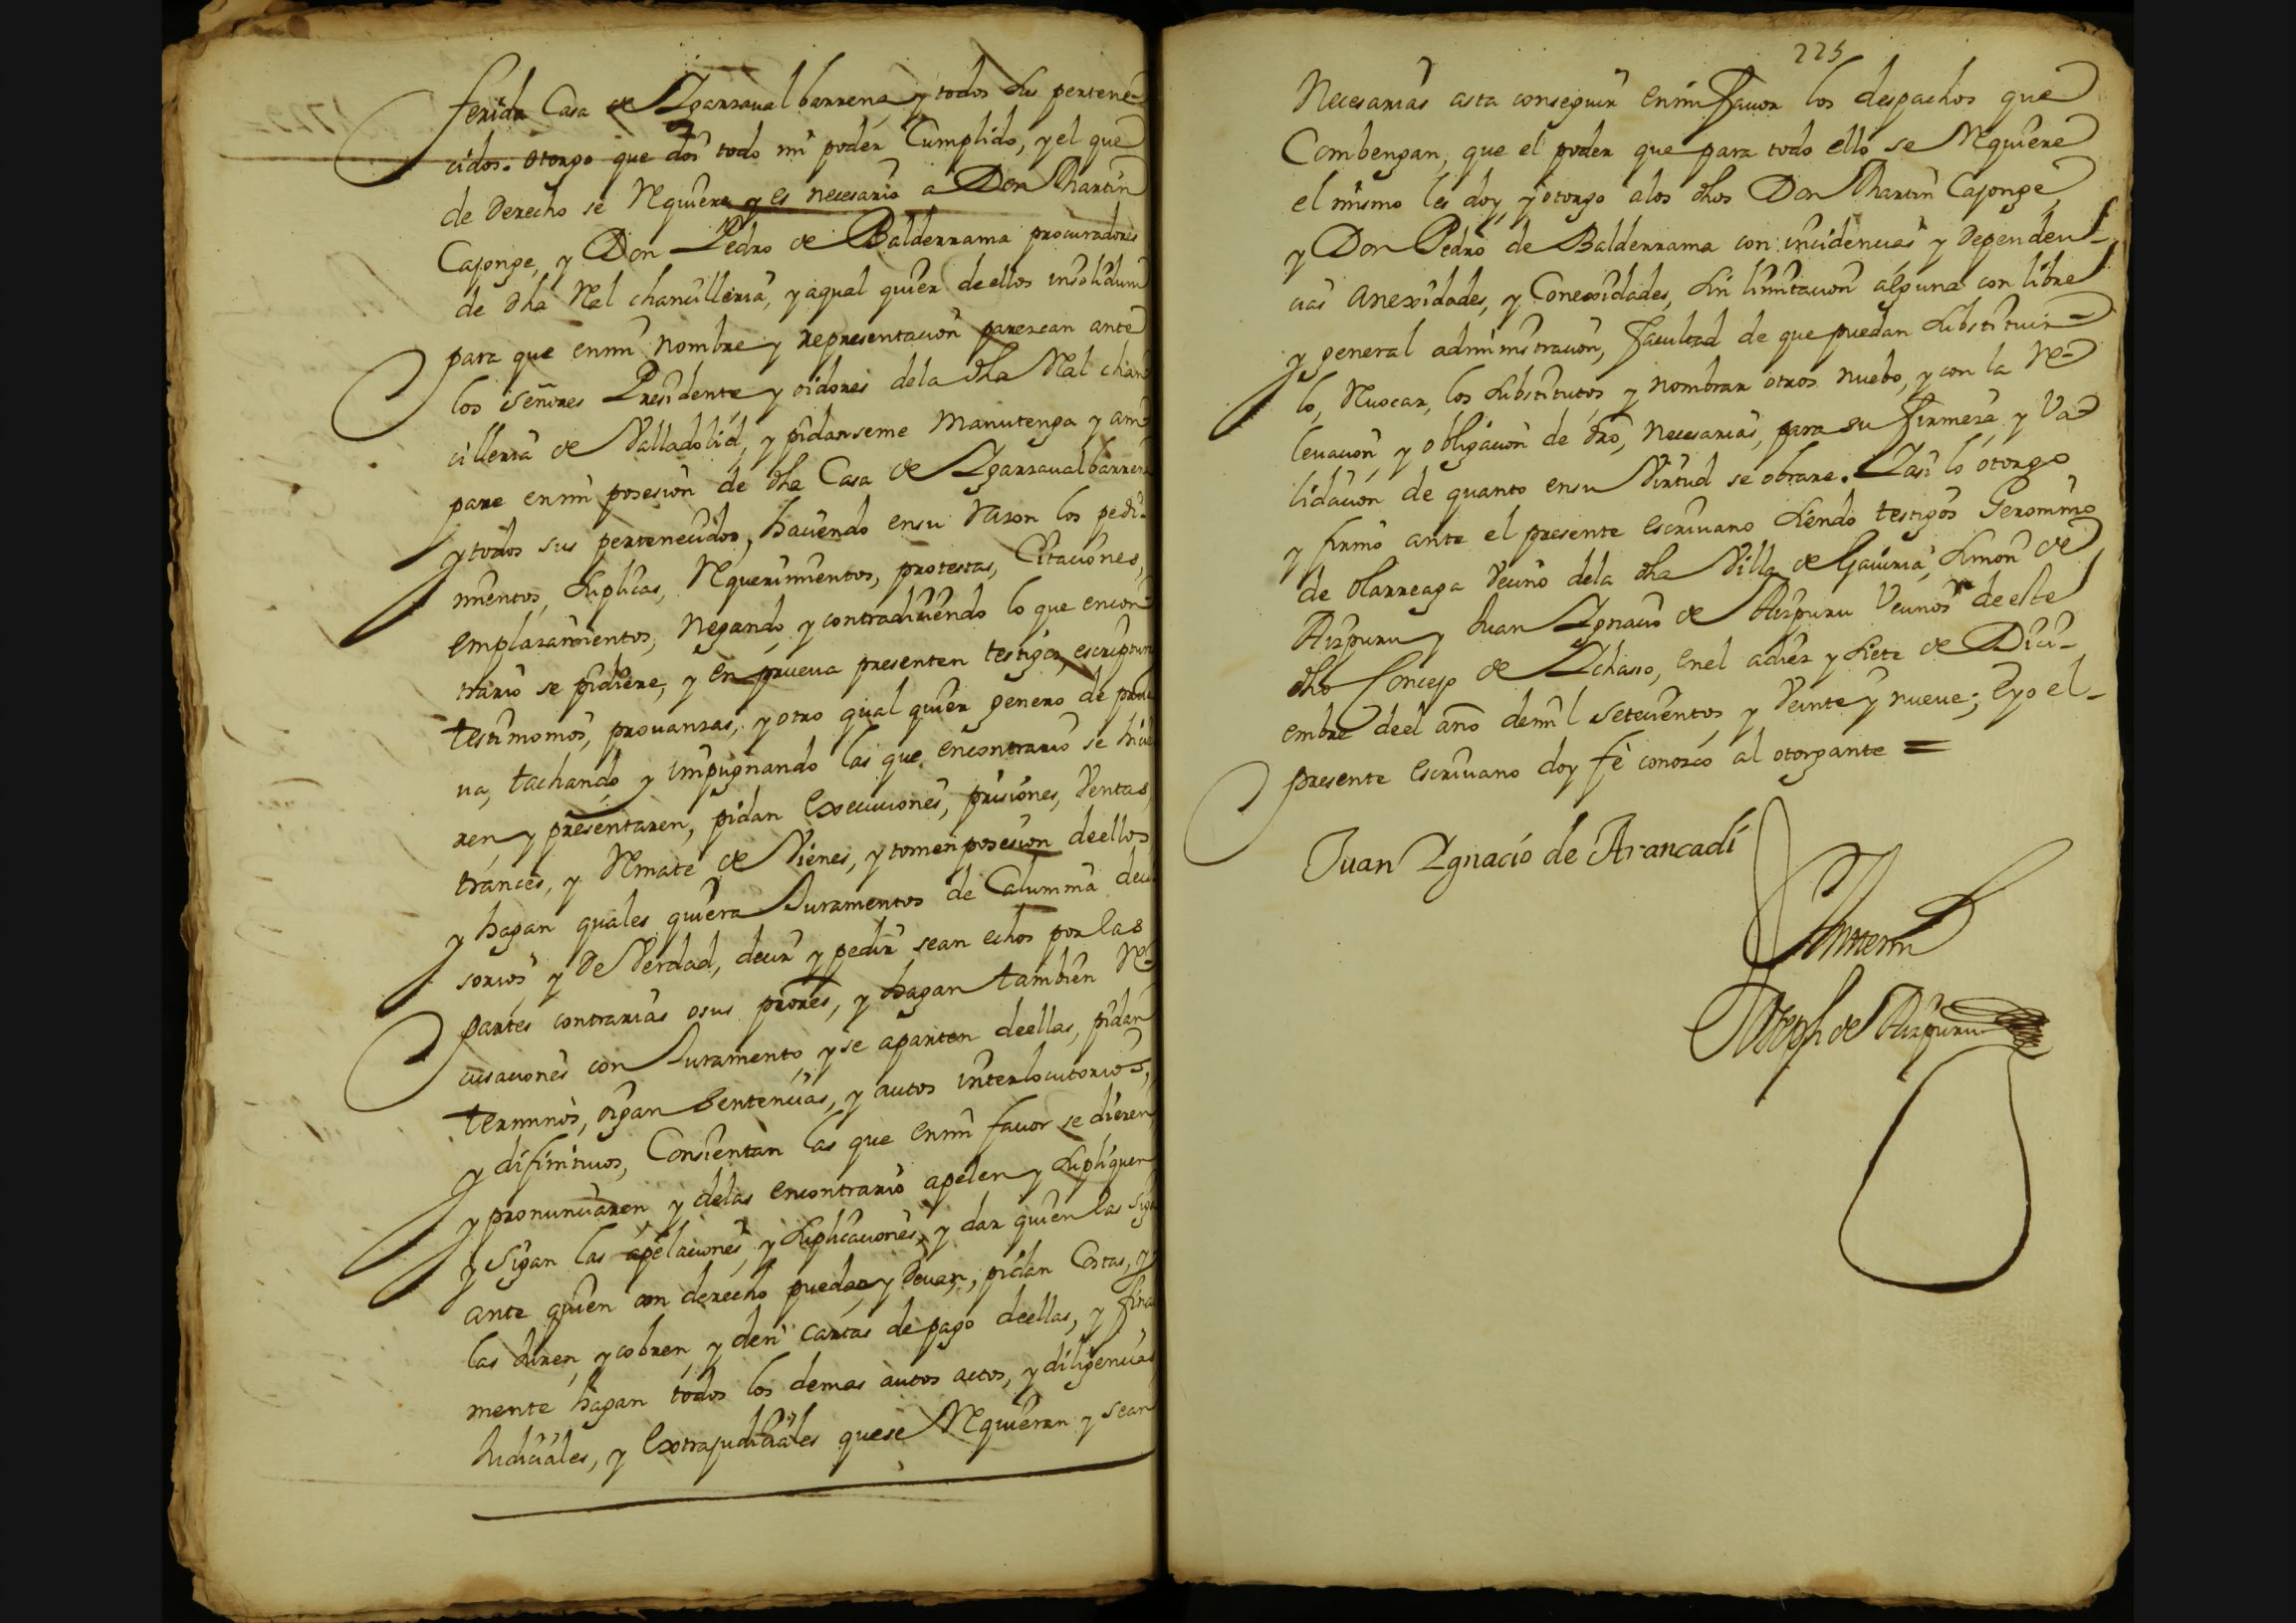 ferida Casa de Ygarzaual barrena, y todos sus pertene-
cidos. otorgo que doi todo mi poder Cumplido, y el que
de derecho se Requiere y es necesario a Don Martin
Cajonge, y Don Pedro de Balderrama procuradores
de dha Rl chancilleria, y aqual quier deellos insolidum
para que enmi nombre y representacion parezcan ante
los señores Presidente y oidores dela dha Rl chan
cilleria de Valladolid, y pidanseme Manutenga y am
pare enmi posesion de dha Casa de Ygarzaualbarrena
y todos sus pertenecidos, haciendo ensu Razon los pedi-
mientos, suplicas, Requerimientos, protestas, Citaciones,
emplazamientos, Negando, y contradiciendo lo que encon
trario se pidiere, y en prueua presenten testigos, escriptur
testimonios, prouanzas, y otro qual quier genero de prue
ua, tachando y impugnando las que encontrario se hicie
ren y presentaren, pidan execuciones, prisiones, Ventas,
trances, y Remate de Vienes, y tomen posesion deellos
y hagan quales quiera Juramentos de Calumnia deci
sorios y De Verdad, decir y pedir sean echos por las
partes contrarias osus priores, y hagan tambien Re-
cusaciones con Juramento y se aparten deellas, pidan
terminos, oigan Sentencias, y autos interlocutorios,
y difinitiuos, Consientan las que enmi fauor se dieren
y pronunciaren y delas encontrario apelen y supliquen
y sigan las apelaciones, y suplicaciones, y dar quien las siga
ante quien con derecho puedan y deuan, pidan Costas, y
las Juren, y cobren y den cartas de pago deellas, y final
mente hagan todos los demas autos actos, y diligencias
Judiciales, y extrajudiciales quese Requieran y sean
225
Necesarias asta conseguir enmi fauor los despachos que
Combengan, que el poder que para todo ello se Requiere
el mismo les doy, y otorgo alos dhos Don Martin Cajonge,
y Don Pedro de Balderrama con incidencias y dependen-
cias anexidades, y Conexidades, sin limitacion alguna con libre
y general administracion, facultad de que puedan substituir-
lo, Reuocar, los substitutos y nombrar otros nuebo, y con la Re-
leuacion y obligacion de dro, necesarias, para su firmeza y Va-
lidacion de quanto ensu Virtud se obrare. Yasi lo otorgo
y firmo ante el presente escriuano siendo testigos Geronimo
de olarreaga Vecino dela dha Villa de Gauiria, Simon de
Aizpuru y Juan Ygnacio de Aizpuru Vecinos deeste
dho Concejo de Ychaso, enel adiez y siete de Dici-
embre deel año demil setecientos y Veinte y nueue; Eyo el-
presente escriuano doy fè conozco al otorgante =
Juan Ygnacio de Arancadi
Antemi
Joseph de Aizpuru